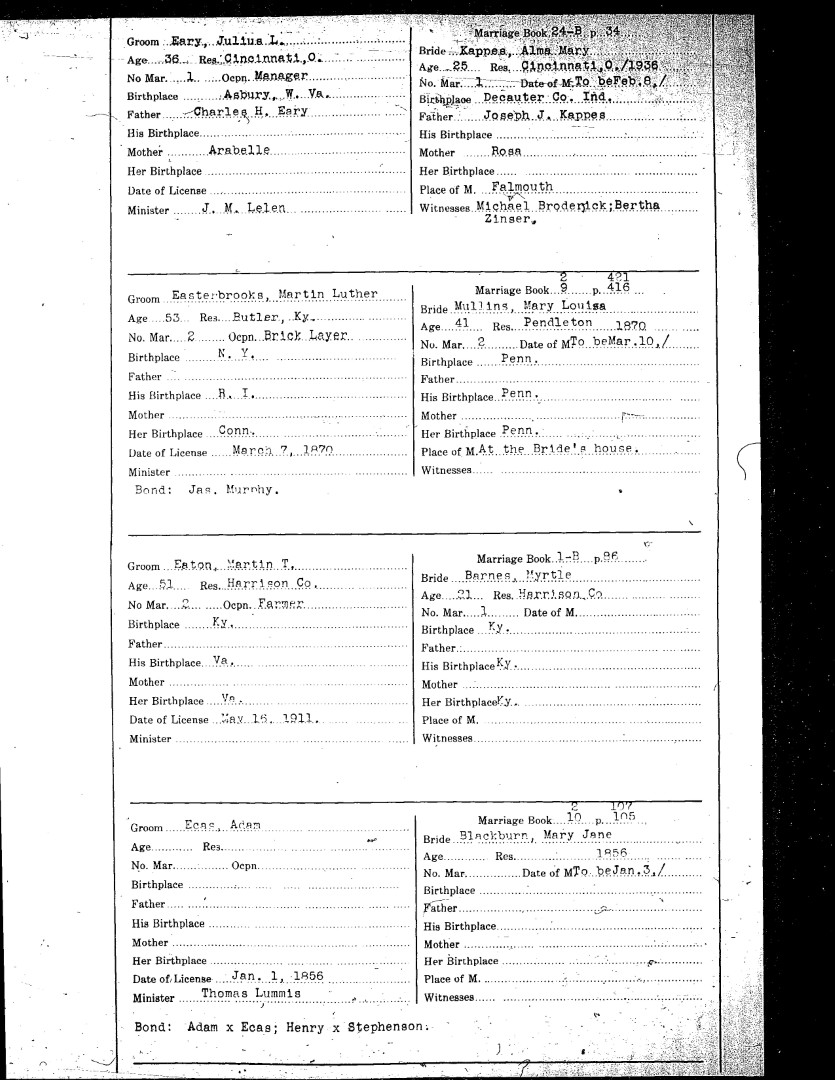 Marriage Book 24-B p. 34
Groom Eary, Julius L.
Bride Kappes, Alma Mary
Age 36 Res. Cincinnati, O.
Age 25 Res. Cincinnati, O. /1936
No Mar. 1 Ocpn. Manager
No. Mar. 1 Date of M. To be Feb. 8, /
Birthplace Asbury, W. Va.
Birthplace Decauter Co. Ind.
Father Charles H. Eary
Father Joseph J. Kappes
His Birthplace
His Birthplace
Mother Arabelle
Mother Rosa
Her Birthplace
Her Birthplace
Date of License
Place of M. Falmouth
Minister J. M. Lelen
Witnesses Michael Broderick; Bertha
Zinser.
2 421
Marriage Book 9 p. 416
Groom Easterbrooks, Martin Luther
Bride Mullins, Mary Louisa
Age 53 Res. Butler, Ky.
Age 41 Res. Pendleton 1870
No. Mar. 2 Ocpn. Brick Layer
No. Mar. 2 Date of M To be Mar. 10, /
Birthplace N. Y.
Birthplace Penn.
Father
Father
His Birthplace R. I.
His Birthplace Penn.
Mother
Mother
Her Birthplace Conn.
Her Birthplace Penn.
Date of License March 7, 1870
Place of M. At the Bride's house.
Minister
Witnesses
Bond: Jas. Murphy.
Marriage Book 1-B p. 86
Groom Eaton, Martin T.
Bride Barnes, Myrtle
Age 51 Res. Harrison Co.
Age 21 Res. Harrison Co
No Mar. 2 Ocpn. Farmer
No. Mar. 1 Date of M.
Birthplace Ky.
Birthplace Ky.
Father
Father
His Birthplace Va.
His Birthplace Ky.
Mother
Mother
Her Birthplace Va.
Her Birthplace Ky.
Date of License May 16, 1911.
Place of M.
Minister
Witnesses
2 107
Marriage Book 10 p. 105
Groom Ecas, Adam
Bride Blackburn, Mary Jane
Age Res.
Age Res. 1856
No. Mar. Ocpn.
No. Mar. Date of M To be Jan. 3, /
Birthplace
Birthplace
Father
Father
His Birthplace
His Birthplace
Mother
Mother
Her Birthplace
Her Birthplace
Date of License Jan. 1, 1856
Place of M.
Minister Thomas Lummis
Witnesses
Bond: Adam x Ecas; Henry x Stephenson.